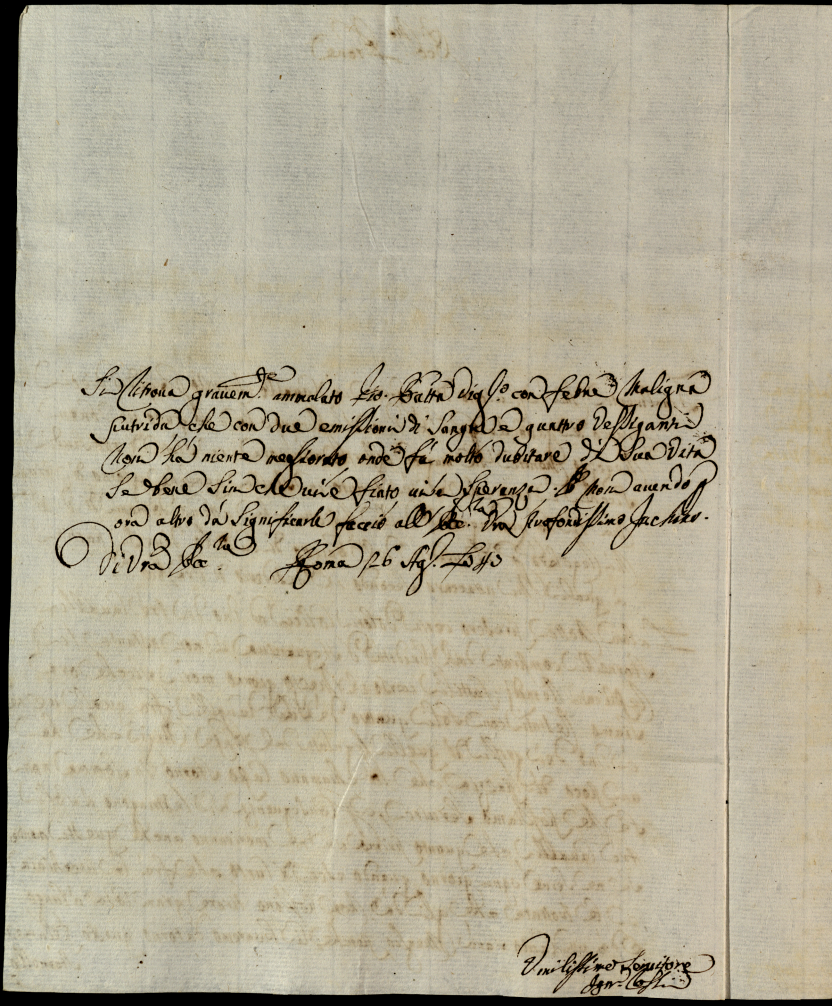 Si ritrova gravem.te ammalato Gio. Batta con febre maligna
putrida che con due emissioni di sangue e quattro vessiganti
non hà niente megliorato, onde fà molto dubitare di sua vita
se bene sin che vi è fiato vi è speranza. Non avendo p
ora altro dà significarle faccio all' Ecc.za Vra profondissimo Inchino.
Di Vra Ecc.za Roma 26 Ag.
Umilissimo Servitore